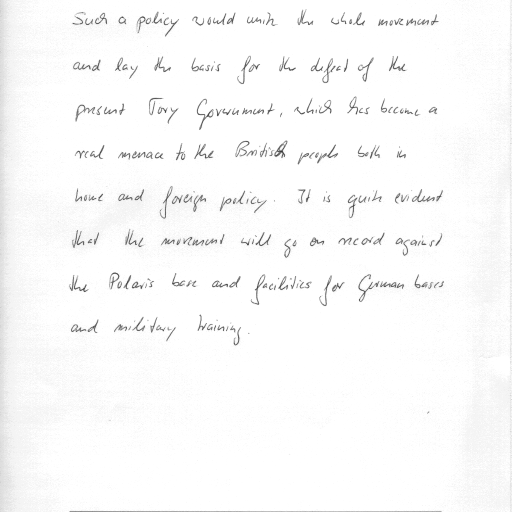 Such a policy would unite the whole movement
and lay the basis for the defeat of the
present Tory Government, which has become a
real menace to the British people both in
home and foreign policy. It is quite evident
that the movement will go on record against
the Polaris base and facilities for German bases
and military training.